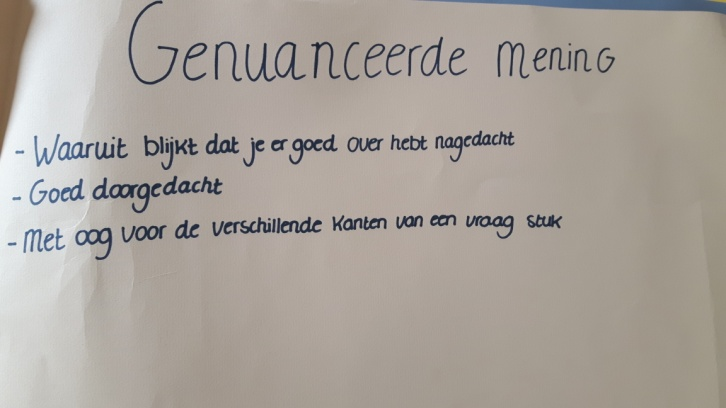 Genuanceerde mening
- Waaruit blijkt dat je er goed over hebt nagedacht
- Goed doorgedacht
- Met oog voor de verschillende kanten van een vraag stuk